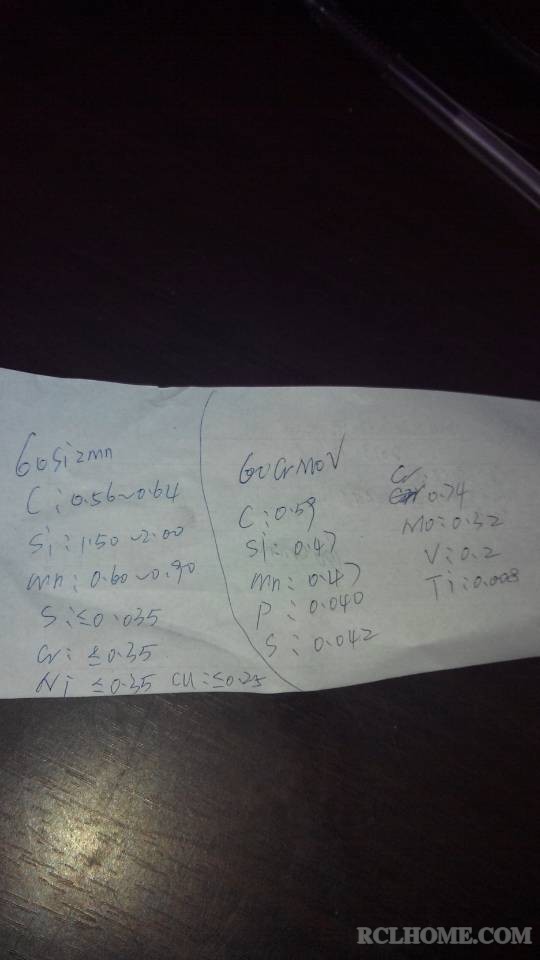 60Si2mn
C: 0.56~0.64
Si: 1.50~2.00
mn: 0.60~0.90
S: ≤0.035
Cr: ≤0.35
Ni ≤0.35 Cu: ≤0.25
60CrMoV
C: 0.59
Si: 0.47
mn: 0.47
P: 0.040
S: 0.042
Cr
0.74
Mo: 0.32
V: 0.2
Ti: 0.008
RCLHOME.COM